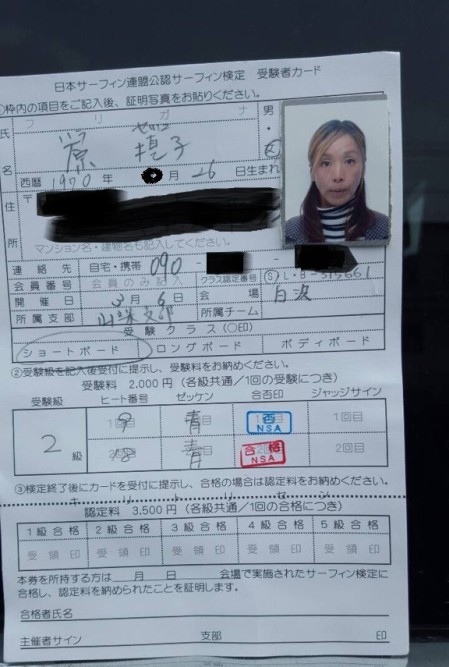 日本サーフィン連盟公認サーフィン検定 受験者カード
①枠内の項目をご記入後、証明写真をお貼りください。
フリガナ
氏名 子 男・女
西暦 1970 年 月 26 日生まれ
住所 〒
マンション名・建物名も記入してください。
連絡先 自宅・携帯 090
会員番号 会員のみ記入 クラス認定番号 (S)・L・B-
開催日 3月6日 会場 白浜
所属支部 支部 所属チーム
受験クラス(○印)
ショートボード ロングボード ボディボード
②受験級を記入後受付に提示し、受験料をお納めください。
受験料 2,000円(各級共通/1回の受験につき)
受験級 ヒート番号 ゼッケン 合否印 ジャッジサイン
2級
1回目 9 青 否 NSA 1回目
18 青 合格 NSA 2回目
③検定終了後にカードを受付に提示し、合格の場合は認定料をお納めください。
キリトリセン
認定料 3,500円(各級共通/1回の合格につき)
1級合格 2級合格 3級合格 4級合格 5級合格
受領印 受領印 受領印 受領印 受領印
本券を所持する方は 月 日 会場で実施されたサーフィン検定に
合格し、認定料を納められたことを証明します。
合格者氏名
主催者サイン 支部 印